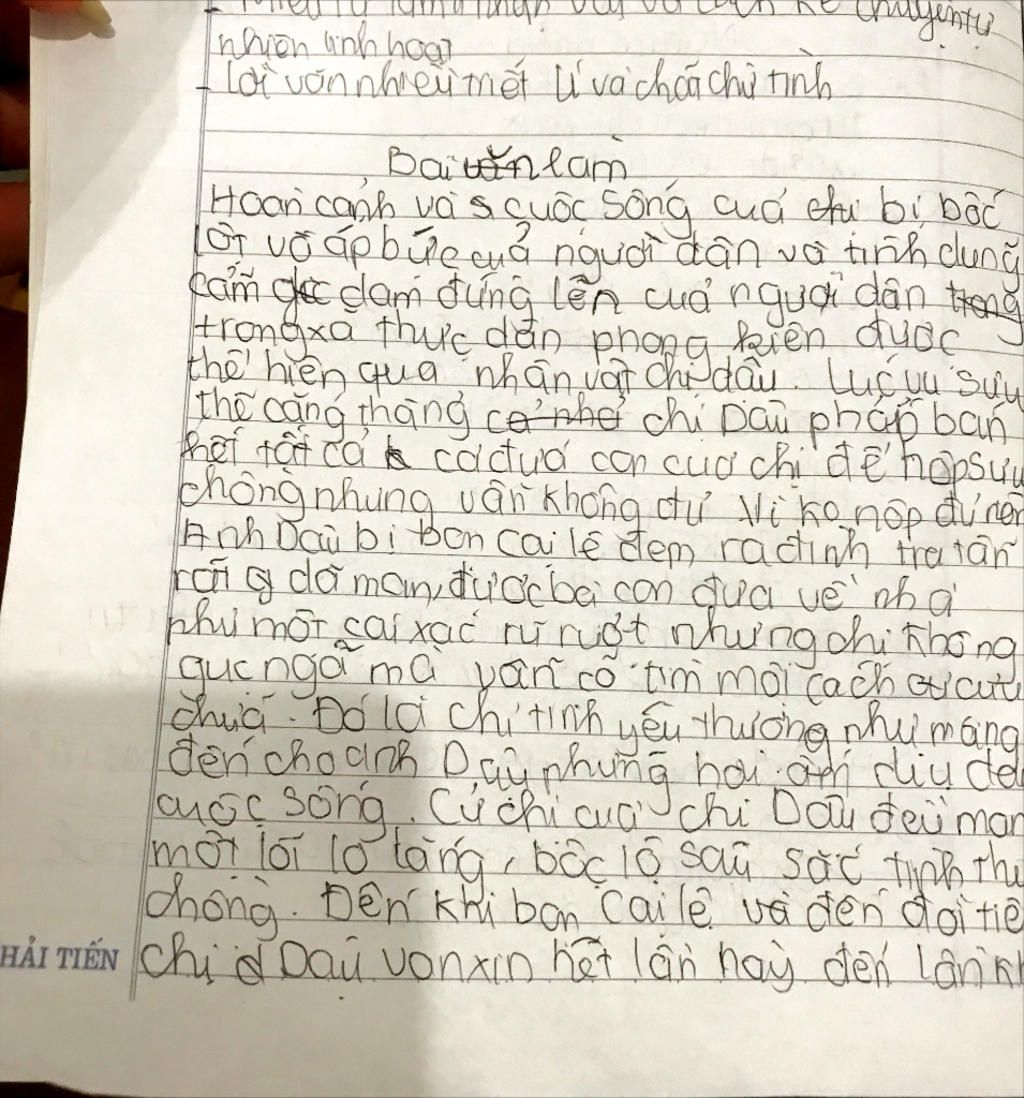 nhiên linh hoạt
- lời văn nhiều mết lí và chất chữ tình
Bài làm
Hoàn cảnh và cuộc sống cuả bị bóc
lột và áp bức cuả người dân và tinh dung
cảm dám đứng lên cuả người dân
trong xã thực dân phong kiến được
thể hiện qua nhân vật chị dậu. Lúc vụ sưu
thế căng thảng chị Dậu phải bán
hết tất cả cả đứa con cuả chị để nộp sưu
chồng nhưng vẫn không đủ Vì ko nộp đủ nên
Anh Dậu bị bọn cai lệ đem ra đình tra tấn
dã man, được bà con đưa về nhà
như một cái xác rũ rượt nhưng chị không
gục ngã mà vẫn cố tìm mọi cách cứu
chưã. Đó là chị tình yêu thương như mang
đến cho anh Dậu những hơi ấm dịu
cuộc sống. Cử chỉ cuả chị Dậu đều man
một lối lo lắng, bộc lộ sâu sắc tình
chồng. Đến khi bọn cai lệ đến đòi tiề
chị Dậu van xin hết lần này đến lần
HẢI TIẾN